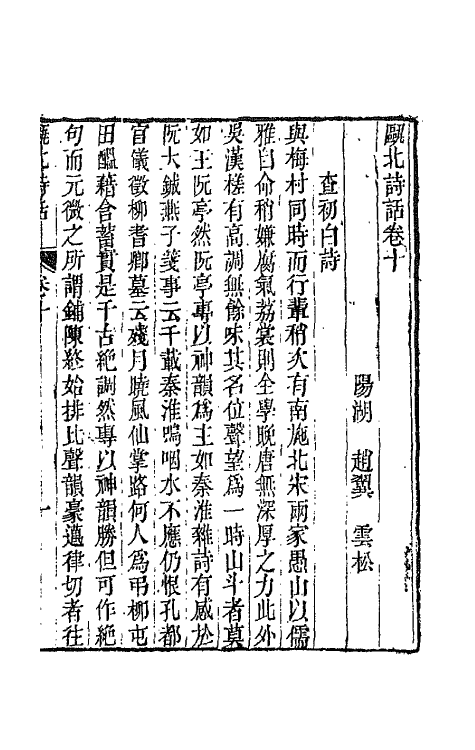 甌北詩話卷十
陽湖 趙翼 雲松
查初白詩
與梅村同時而行輩稍次有南施北宋兩家愚山以儒
雅自命稍嫌腐氣荔裳則全學晚唐無深厚之力此外
吳漢槎有高調無餘味其名位聲望為一時山斗者莫
如王阮亭然阮亭專以神韻為主如秦淮雜詩有感於
阮大鋮燕子箋事云千載秦淮嗚咽水不應仍恨孔都
官儀徵柳耆卿墓云殘月曉風仙掌路何人為弔柳屯
田醞藉含蓄實是千古絕調然專以神韻勝但可作絕
句而元微之所謂鋪陳終始排比聲韻豪邁律切者往
甌北詩話 卷十 一